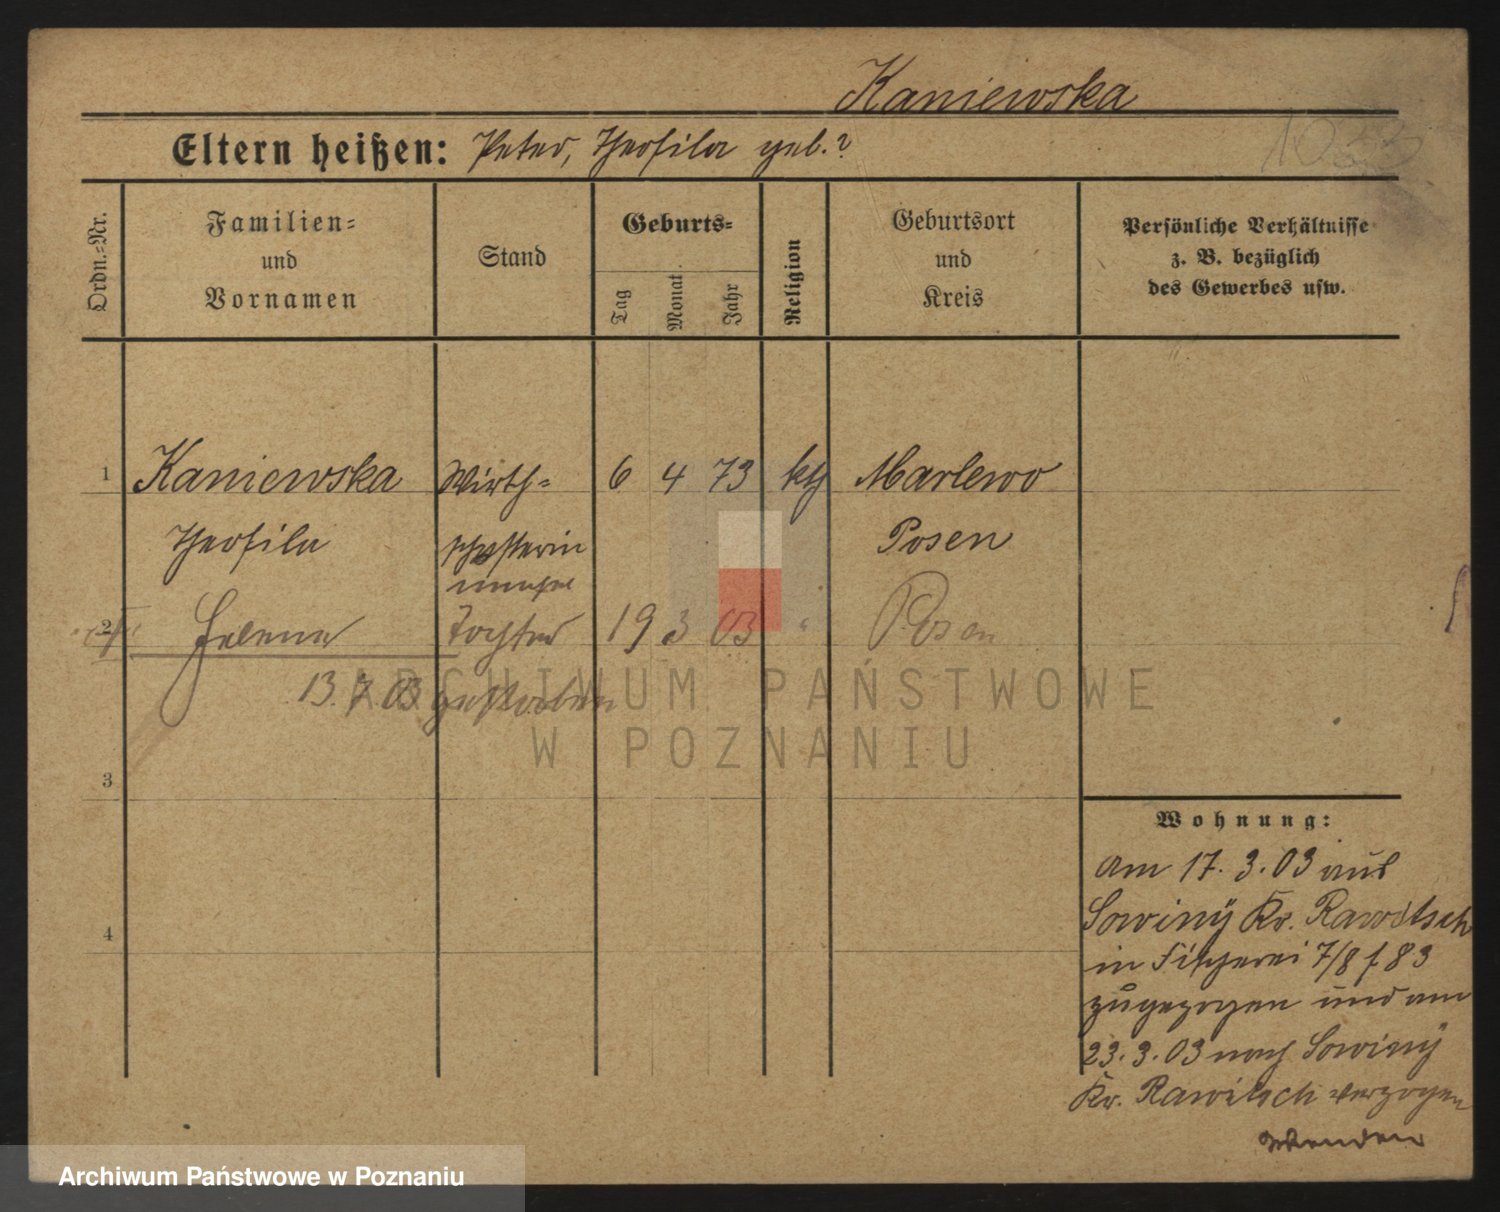 Kaniewska
Eltern heißen: Peter, Theofila geb.?
Ordn.=Nr.
Familien=
und
Vornamen
Stand
Geburts=
Tag
Monat
Jahr
Religion
Geburtsort
und
Kreis
Persönliche Verhältnisse
z. B. bezüglich
des Gewerbes usw.
1 Kaniewska Wirth= 6 4 73 kth Marlewo
Theofila schafterin Posen
2 Helena Tochter 19 3 03 " Posen
13.7.03 gestorben
3
4
Wohnung:
Am 17.3.03 aus
Sowiny Kr. Rawitsch
in Fischerei 7/8 f 83
zugezogen und am
23.3.03 nach Sowiny
Kr. Rawitsch verzogen
Wenden
ARCHIWUM PAŃSTWOWE
W POZNANIU
Archiwum Państwowe w Poznaniu